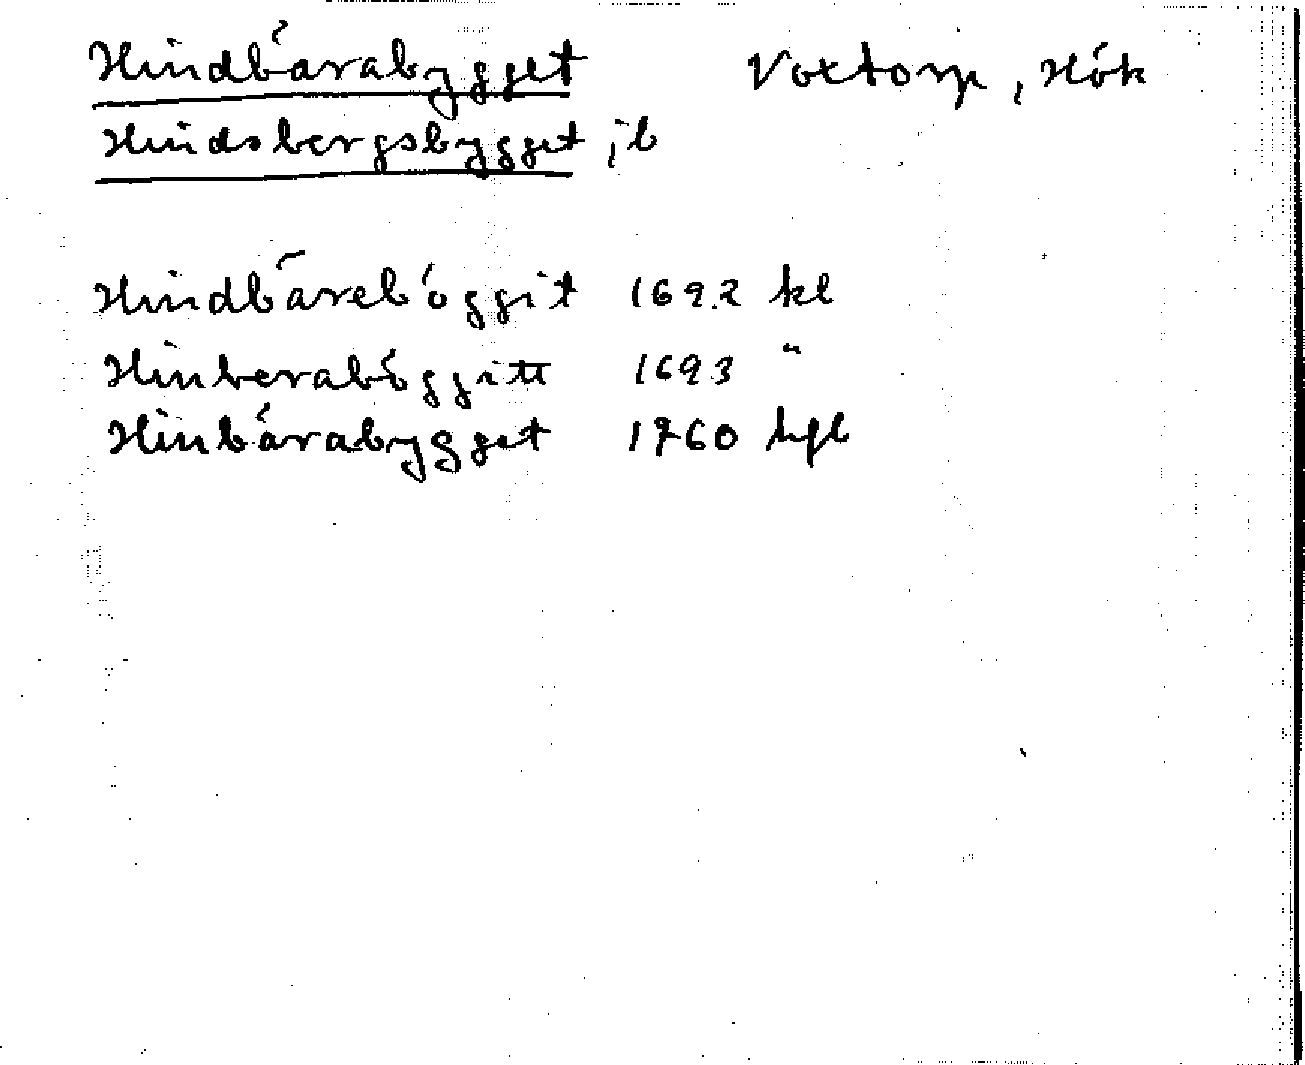 Hindbärabygget Voxtorp, Hök
Hindsbergsbygget, ib
Hindbärebôggit 1692 kl
Hinberabôggitt 1693 "
Hinbärabygget 1760 hfl